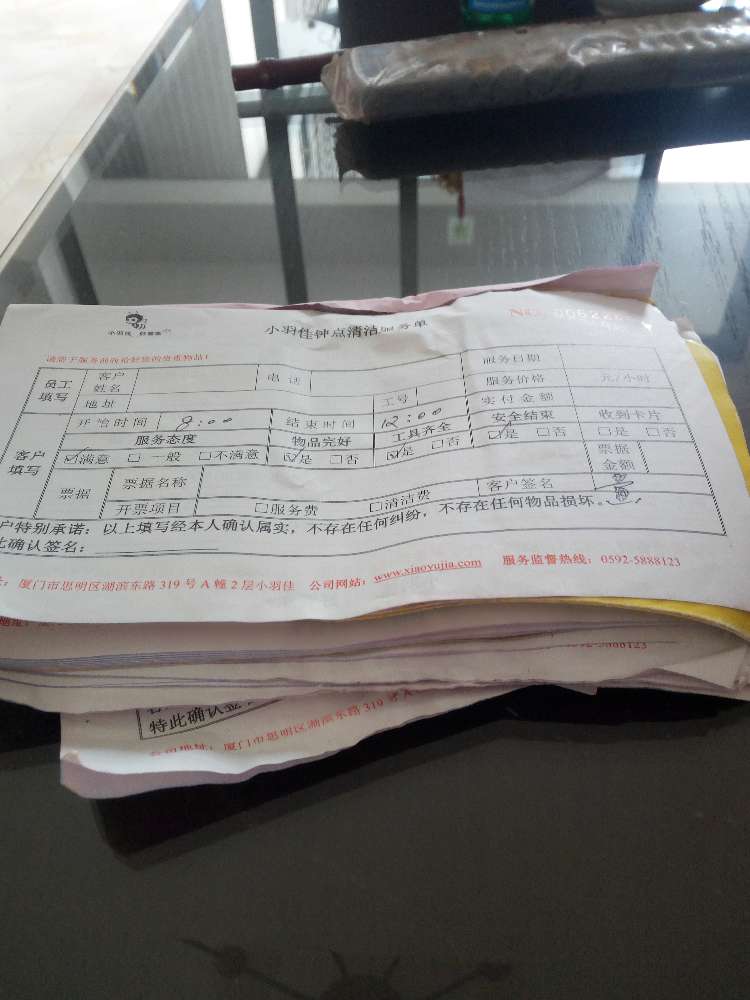 小羽佳钟点清洁服务单
请您于服务前收拾好您的贵重物品！
员工填写 客户姓名 电话 服务日期
地址 工号 服务价格 元/小时
实付金额
客户填写 开始时间 9:00 结束时间 12:00 安全结束 收到卡片
服务态度 物品完好 工具齐全 ☑是 □否 □是 □否
☑满意 □一般 □不满意 ☑是 □否 ☑是 □否 票据金额
票据 票据名称 客户签名
开票项目 □服务费 □清洁费
户特别承诺：以上填写经本人确认属实，不存在任何纠纷，不存在任何物品损坏。
此确认签名：
厦门市思明区湖滨东路 319 号 A 幢 2 层小羽佳 公司网站：www.xiaoyujia.com 服务监督热线：0592-5888123
特此确认签
厦门市思明区湖滨东路 319 号 A